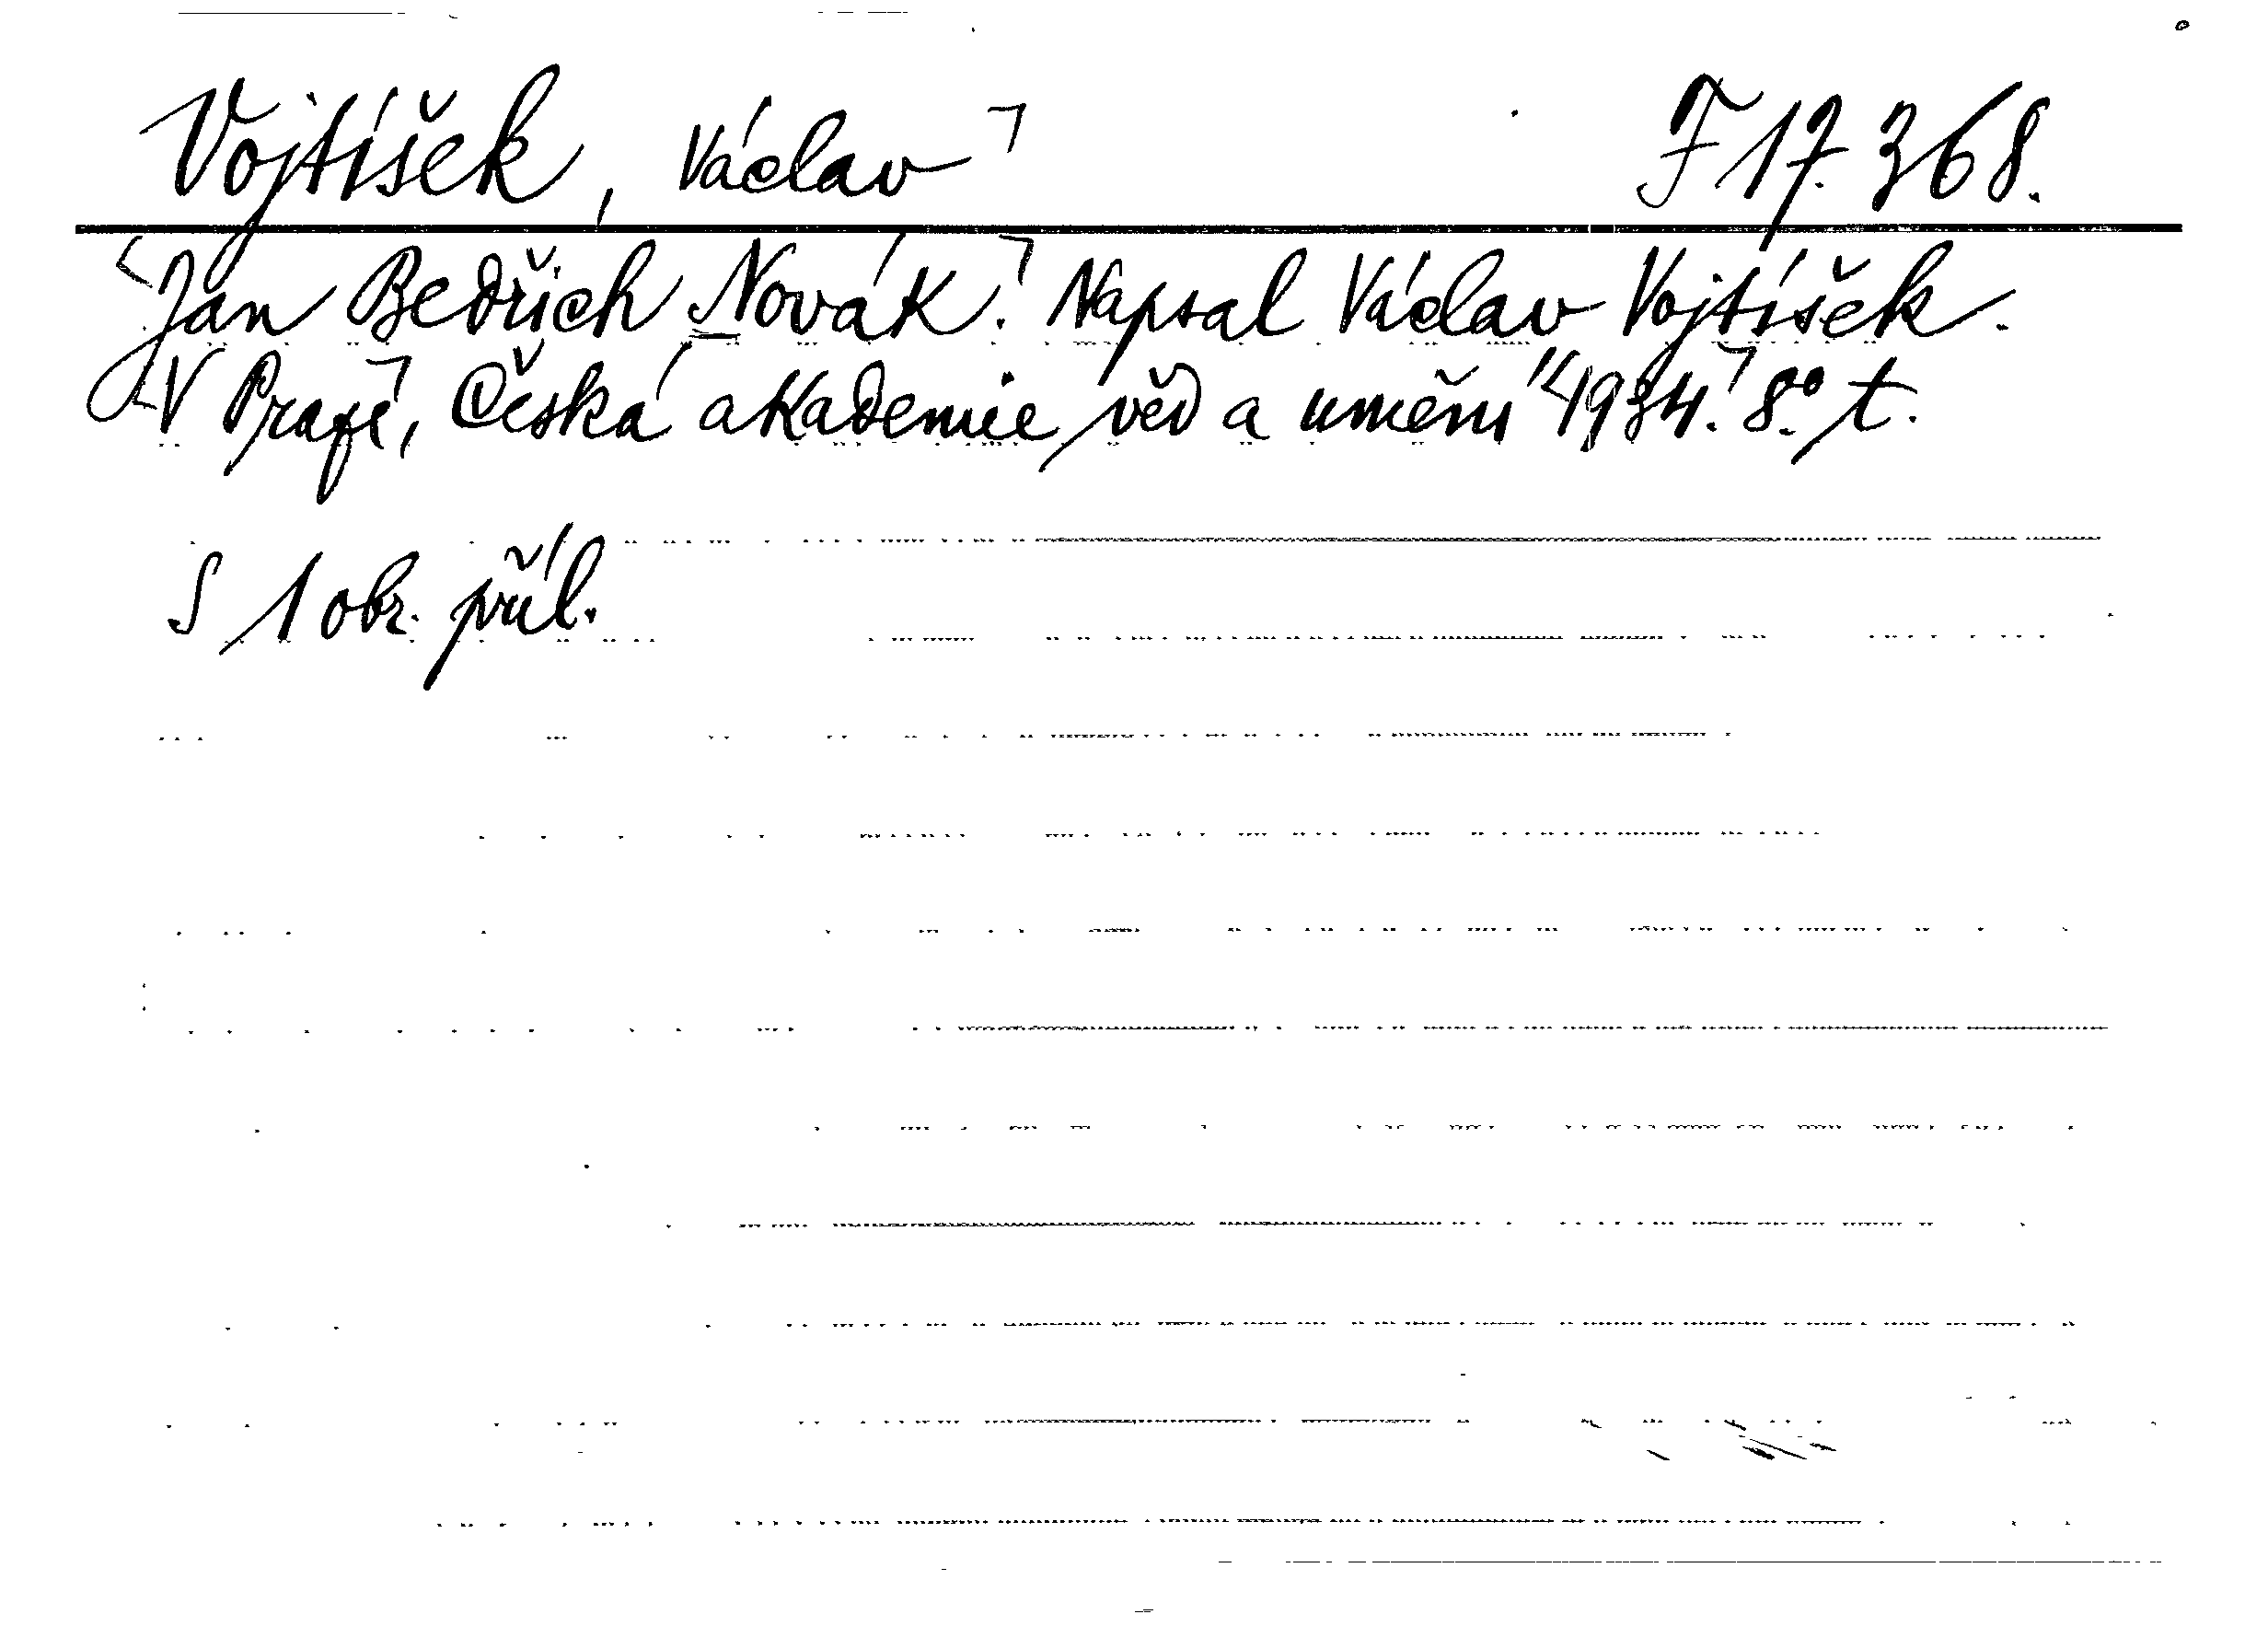 Vojtíšek, Václav F 17.368.
Jan Bedřich Novák. Napsal Václav Vojtíšek.
V Praze, Česká akademie věd a umění 1934. 8° t.
S 1 obr. příl.